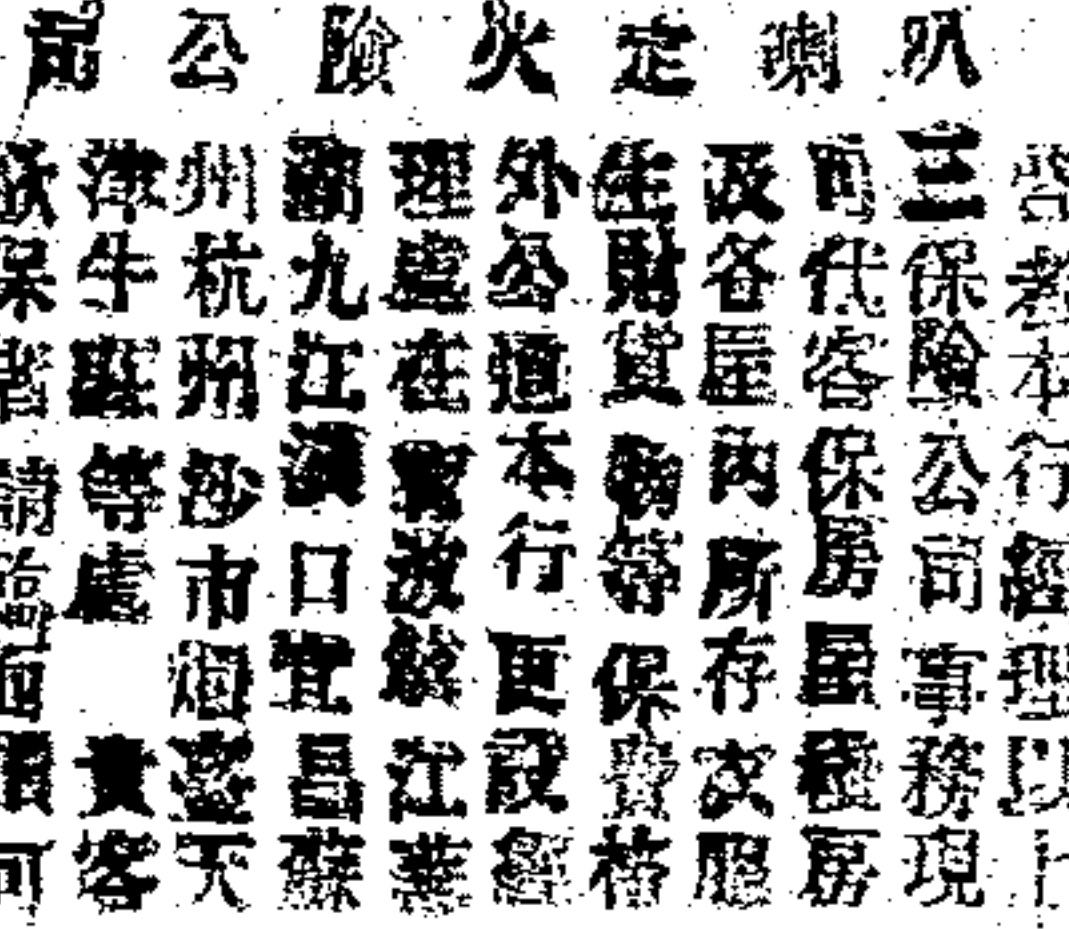 叭喇定火險公司
啓者本行經理以上
三保險公司事務現
代客保房屋棧房
及各屋內所存衣服
生財貨物等保費格
外公道本行更設經
理處在寧波鎮江蕪
湖九江漢口宜昌蘇
州杭州沙市烟臺天
津牛莊等處 貴客
欲保者請臨面可